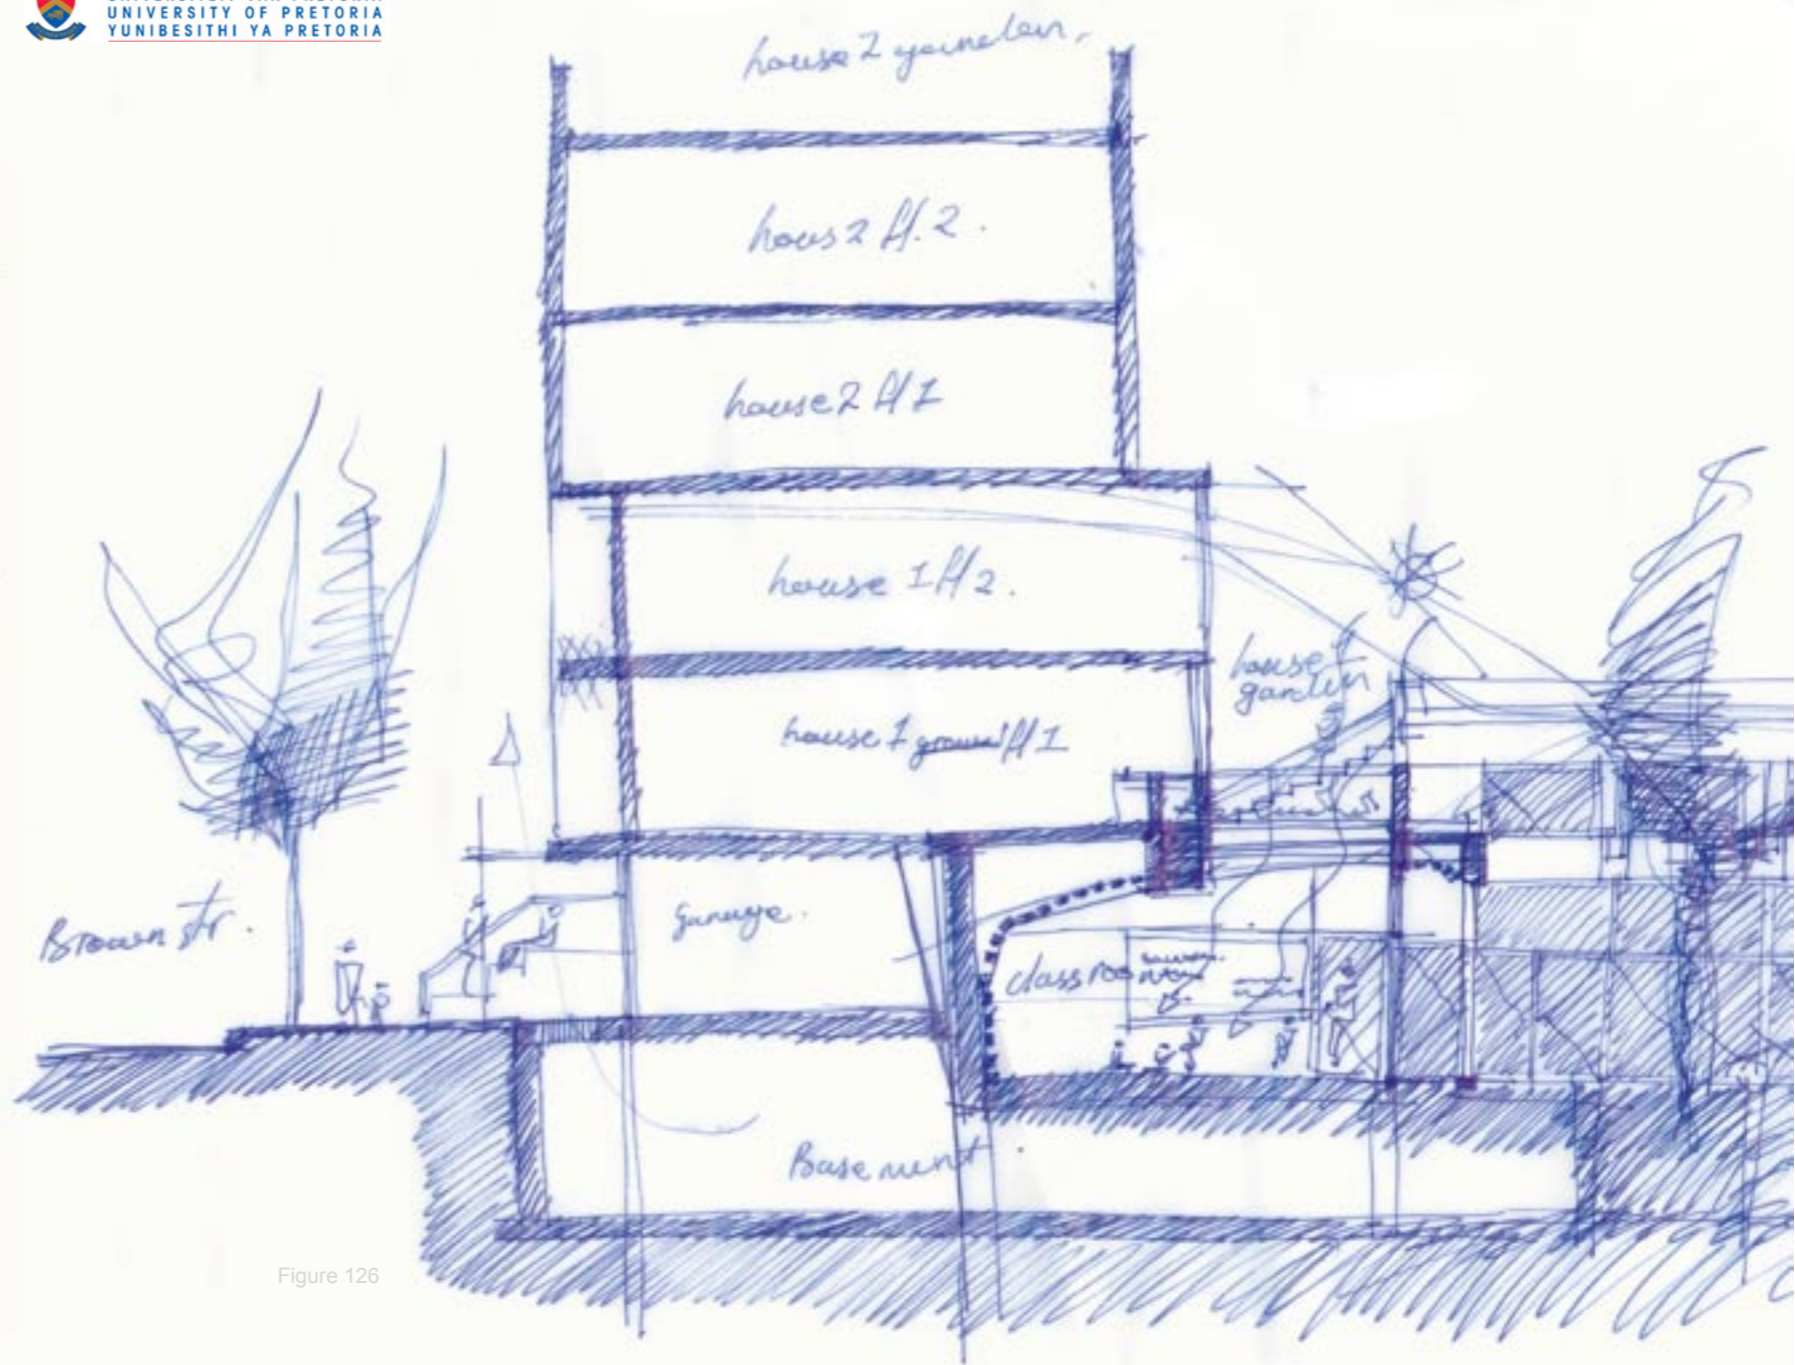 UNIVERSITY OF PRETORIA
YUNIBESITHI YA PRETORIA
house 2 garden.
hous 2 fl. 2.
house 2 fl 1
house 1 fl 2.
house 1
garden
house 1 ground fl 1
Brown str.
garage.
classroom
Basement.
Figure 126